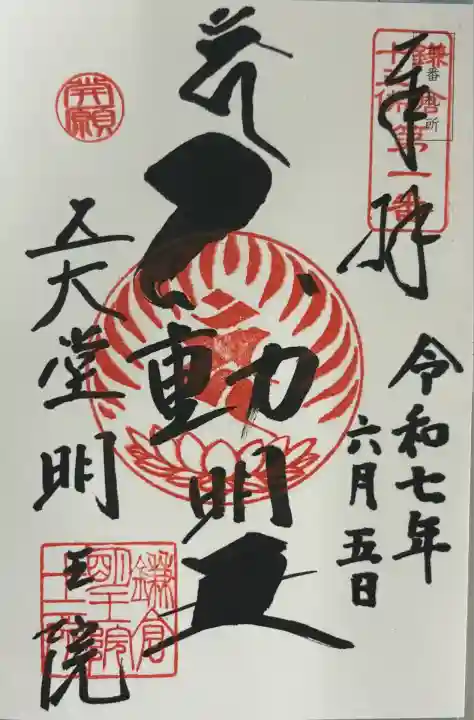 奉拝
令和七年
六月五日
鎌倉
十三佛第一番
番札所
開願
不動明王
五大堂明王院
鎌倉
明王院